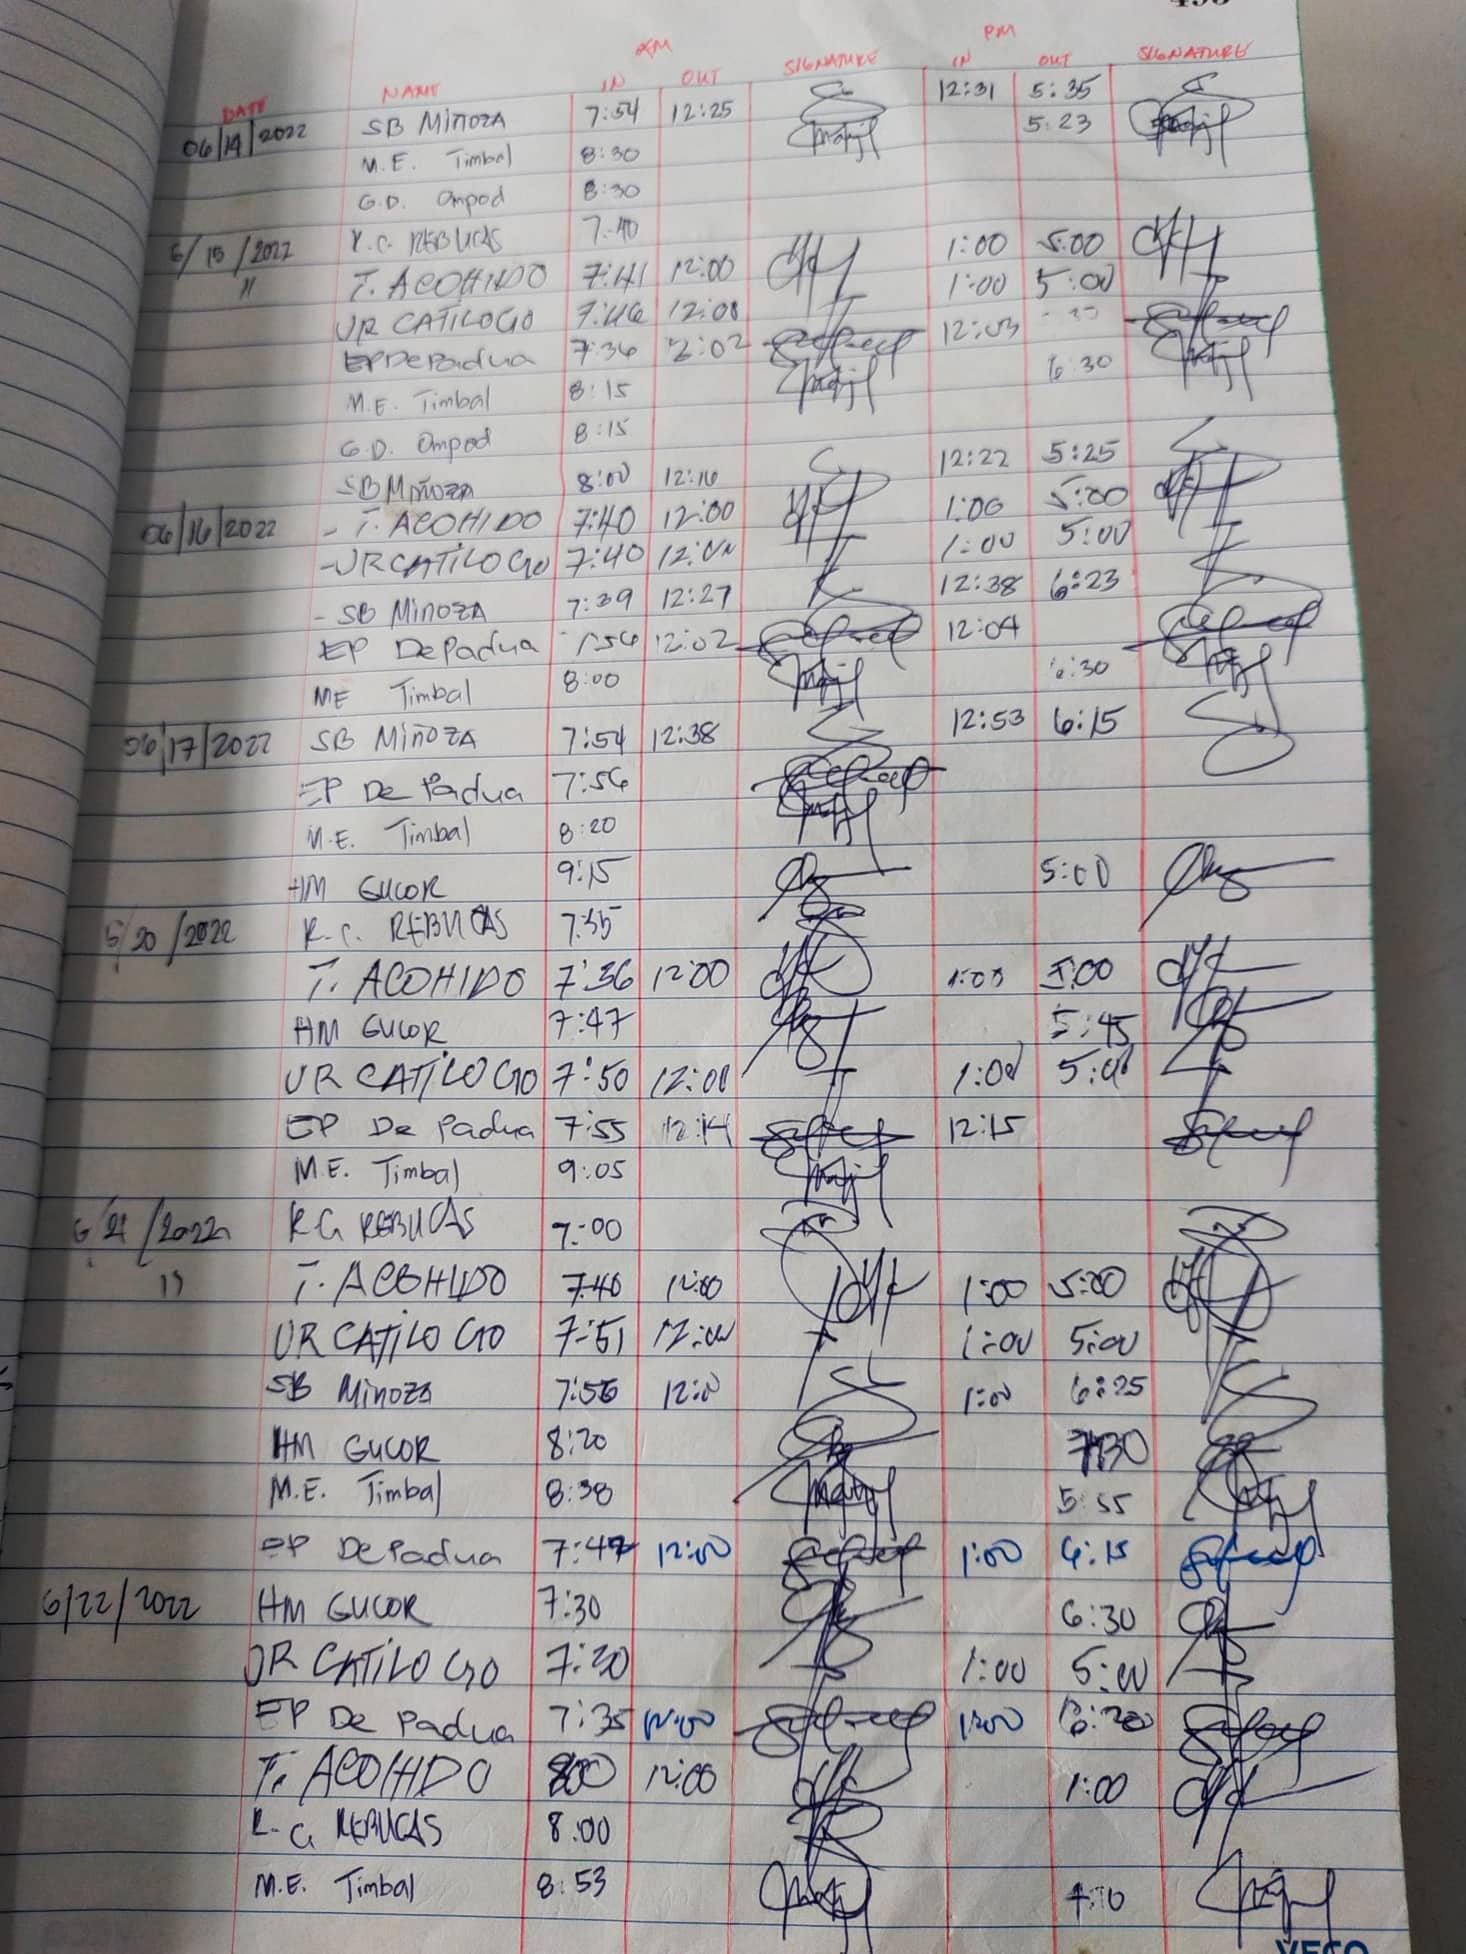 AM PM
DATE NAME IN OUT SIGNATURE IN OUT SIGNATURE
06/14/2022 SB Miñoza 7:54 12:25 12:31 5:35
M.E. Timbal 8:30 5:23
G.D. Ompod 8:30
6/15/2022 R.C. REBUCAS 7:40
" T. ACOHIDO 7:41 12:00 1:00 5:00
UR CATILOGO 7:46 12:00 1:00 5:00
EP De Padua 7:36 12:02 12:03
M.E. Timbal 8:15 6:30
G.D. Ompod 8:15
SB Miñoza 8:00 12:16 12:22 5:25
06/16/2022 - T. ACOHIDO 7:40 12:00 1:00 5:00
- UR CATILOGO 7:40 12:00 1:00 5:00
- SB Minoza 7:39 12:27 12:38 6:23
EP De Padua 7:56 12:02 12:04
ME Timbal 8:00 6:30
06/17/2022 SB Miñoza 7:54 12:38 12:53 6:15
EP De Padua 7:56
M.E. Timbal 8:20
HM GUCOR 9:15 5:00
6/20/2022 R.C. REBUCAS 7:35
T. ACOHIDO 7:36 12:00 1:00 5:00
HM GUCOR 7:47 5:45
UR CATILOGO 7:50 12:00 1:00 5:00
EP De Padua 7:55 12:14 12:15
M.E. Timbal 9:05
6/21/2022 R.C. REBUCAS 7:00
" T. ACOHIDO 7:40 12:00 1:00 5:00
UR CATILOGO 7:51 12:00 1:00 5:00
SB Minoza 7:56 12:00 1:00 6:25
HM GUCOR 8:20
M.E. Timbal 8:38 5:55
EP De Padua 7:47 12:00 1:00 6:15
6/22/2022 HM GUCOR 7:30 6:30
UR CATILOGO 7:20 1:00 5:00
EP De Padua 7:35 12:00 1:00
T. ACOHIDO 800 12:00 1:00
R.C. REBUCAS 8:00
M.E. Timbal 8:53
VECO